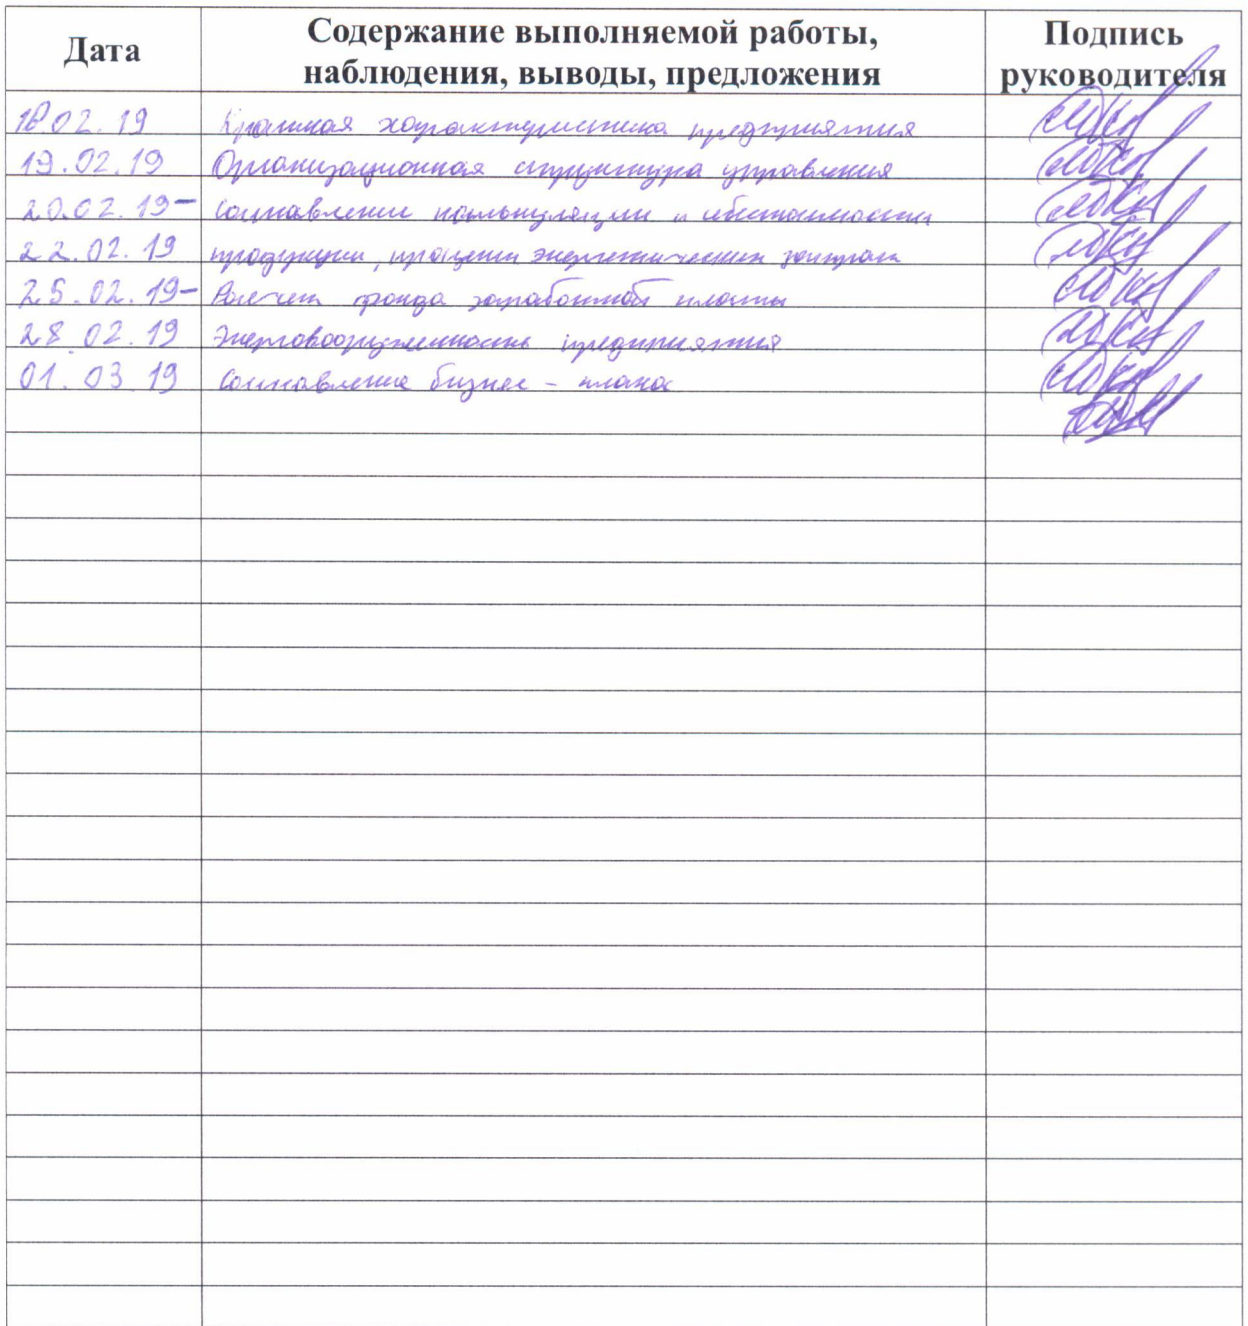 Дата Содержание выполняемой работы, Подпись
наблюдения, выводы, предложения руководителя
18.02.19 Краткая характеристика предприятия
19.02.19 Организационная структура управления
20.02.19- Составление калькуляции и себестоимости
22.02.19 продукции, процент энергетических затрат
25.02.19- Расчет фонда заработной платы
28.02.19 Энерговооруженность предприятия
01.03.19 Составление бизнес - плана